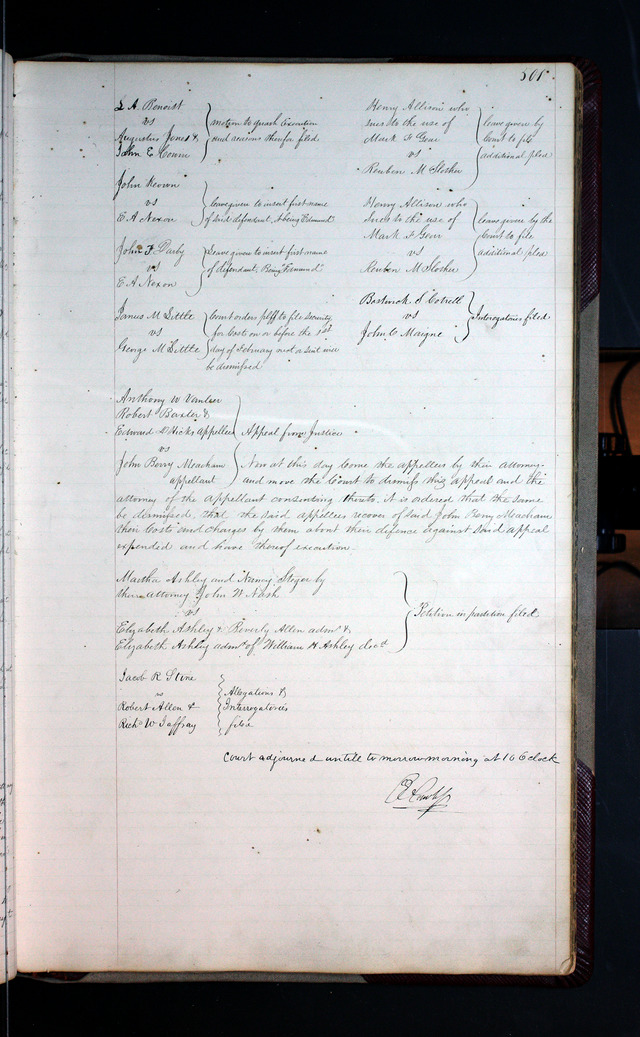 L A. Benoist
vs
Augustus Jones &
John E Cowan
motion to quash Execution
and reasons therefor filed
Henry Allison who
sues to the use of
Mark F Goar
vs
Reuben M Slosher
leave given by
Court to file
additional plea
John Keown
vs
E A Nexon
leave given to insert first name
of said defendant, it being Edmund
Henry Allison who
sues to the use of
Mark F Goar
vs
Reuben M Slosher
leave given by the
Court to file
additional plea
John F Darby
vs
E A Nexon
Leave given to insert first name
of defendant, Being "Edmund"
James M Little
vs
George M Little
Court orders plff to file security
for Costs on or before the 1st
day of February next or suit will
be dismissed
Bostwick S Cotrell
vs
John C Maigne
Interogatories filed
Anthony W
Robert Baxter &
Edward D Hicks appellees
vs
John Berry Meacham
appellant
Appeal from Justice
Now at this day Come the appellees by their attorney
and move the Court to dismiss this appeal and the
attorney of the appellant consenting thereto. it is ordered that the same
be dismissed, that the said appellees recover of said John Berry Meacham
their Costs and charges by them about their defence against said appeal
expended and have thereof execution.
Martha Ashley and Nancy by
their attorney John W Nash
vs
Elizabeth Ashley & Beverly Allen admr &
Elizabeth Ashley admr of William H Ashley decd
Petition in partition filed
Jacob R Stine
vs
Robert Allen &
Richd W Jaffray
Allegations &
Interrogatories
filed
Court adjourned untill to morrow morning at 10 O clock